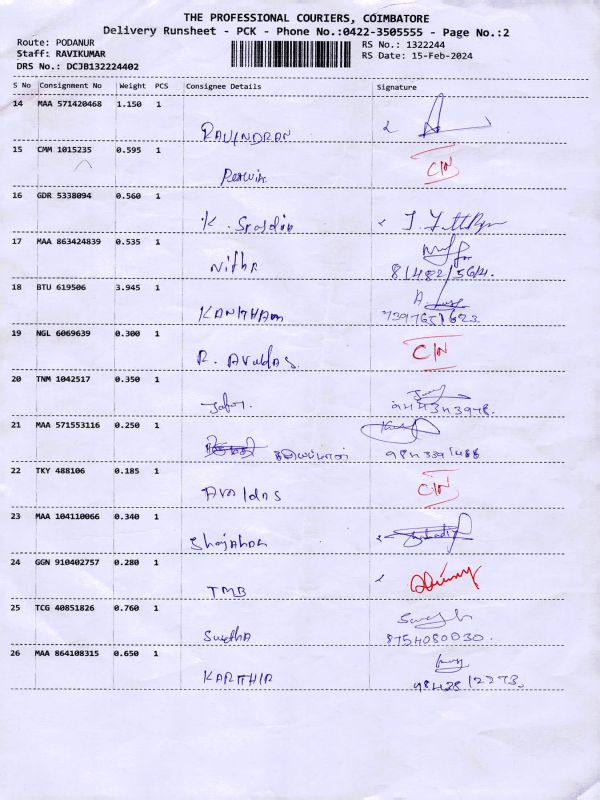 THE PROFESSIONAL COURIERS, COIMBATORE
Delivery Runsheet - PCK - Phone No.:0422-3505555 - Page No.:2
Route: PODANUR
RS No.: 1322244
Staff: RAVIKUMAR
RS Date: 15-Feb-2024
DRS No.: DCJB132224402
S No Consignment No Weight PCS Consignee Details Signature
14 MAA 571420468 1.150 1
RAVINDRAN
15 CMM 1015235 0.595 1
C/N
16 GDR 5338094 0.560 1
K.
17 MAA 863424839 0.535 1
Nitha
18 BTU 619506 3.945 1
19 NGL 6069639 0.300 1
C/N
R. Aruldas.
20 TNM 1042517 0.350 1
Jafar.
21 MAA 571553116 0.250 1
22 TKY 488106 0.185 1
C/N
Aruldas
23 MAA 104110066 0.340 1
Shajahan
24 GGN 910402757 0.280 1
TMB
25 TCG 40851826 0.760 1
Swetha
8754080030.
26 MAA 864108315 0.650 1
KARTHIK